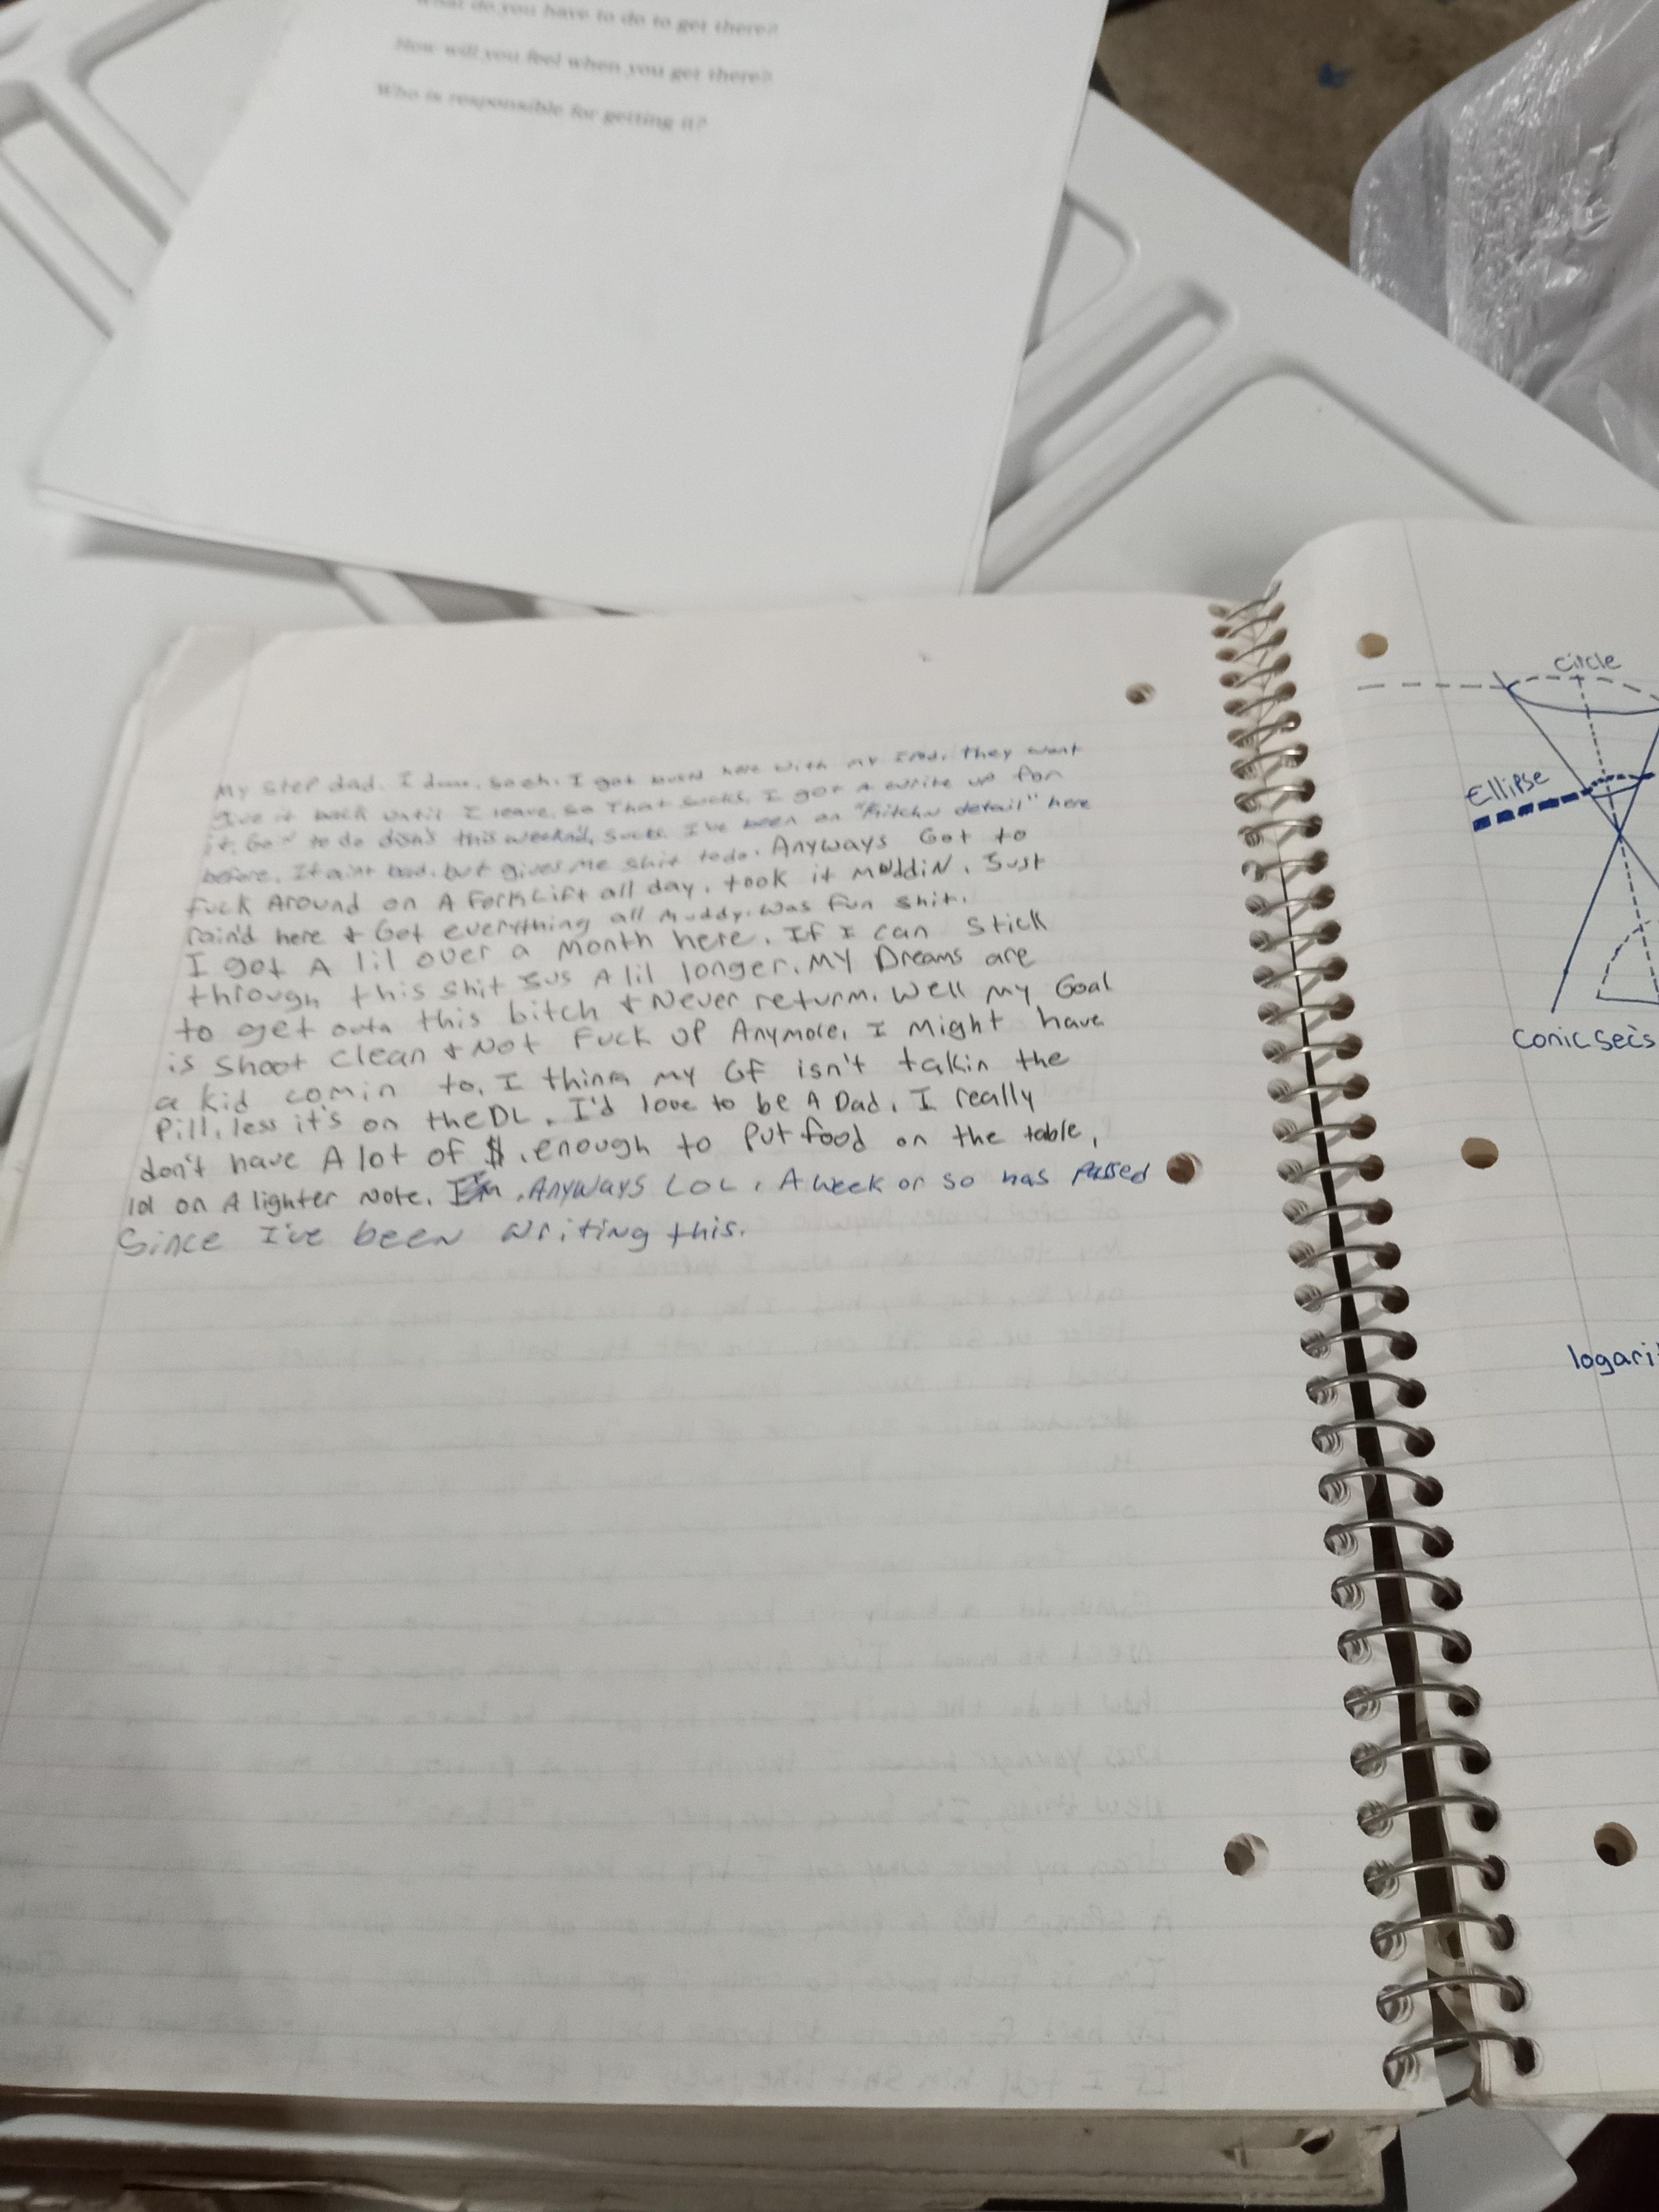 What do you have to do to get there?
How will you feel when you get there?
Who is responsible for getting it?
My step dad. I I got here with my they want
give it back until I leave, so That sucks. I got A write up for
it. Got to do dish's this weeknd, sucks. I've been on "Kitchn detail" here
before. It aint bad, but gives me shit todo. Anyways Got to
Fuck Around on A ForkLift all day, took it muddiN. Just
rain'd here & Got everything all Muddy. Was fun shit.
I got A lil over a month here. If I can stick
through this shit Jus A lil longer. MY Dreams are
to get outa this bitch & Never return. Well my Goal
is shoot clean & Not Fuck UP Anymore, I might have
a kid comin to. I think my GF isn't takin the
Pill, less it's on the DL. I'd love to be A Dad. I really
don't have A lot of $, enough to Put food on the table,
lol on A lighter Note. I'm, Anyways LOL. A week or so has Passed
Since I've been writing this.
circle
Ellipse
conic secs
logari